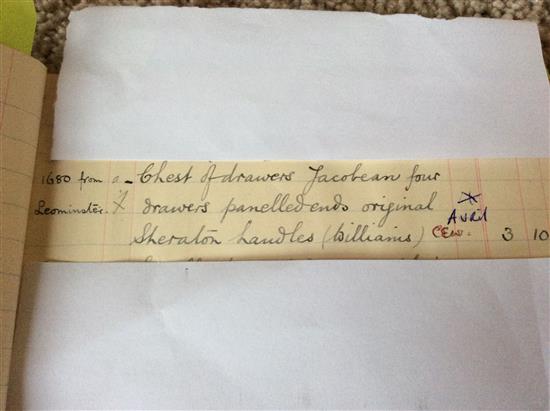 1680 from a - Chest of drawers Jacobean four
Leominster. X drawers panelled ends original Avril
Sheraton handles (Williams) CEW. 3 10